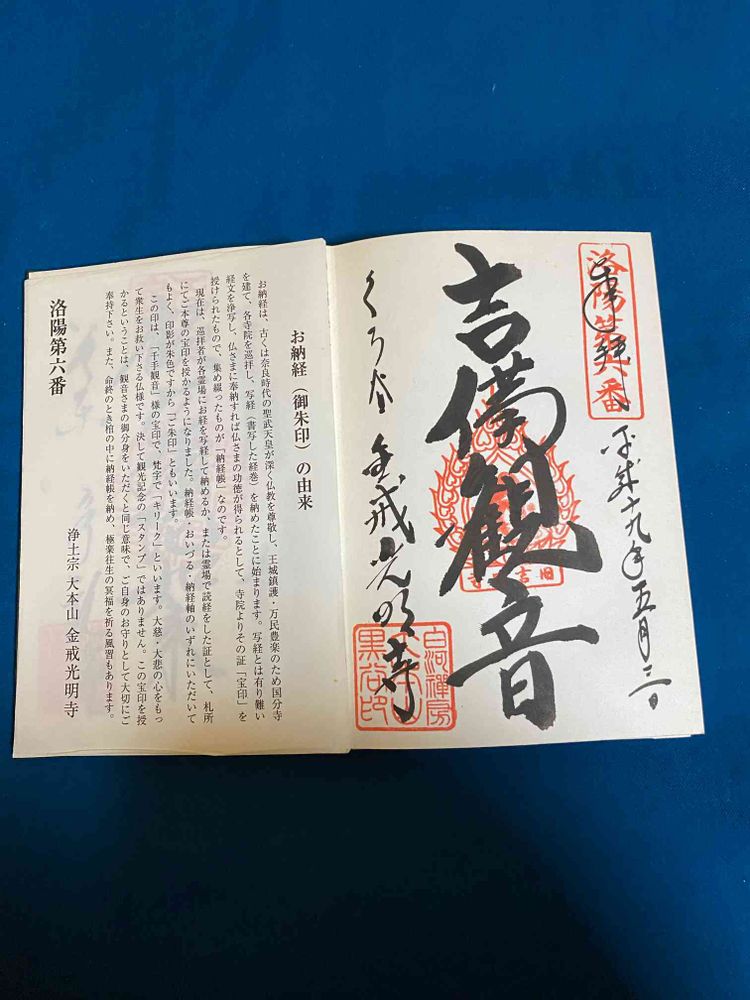 洛陽第六番
奉拝
平成十九年五月三日
吉備観音
旧吉
くろ谷 金戒光明寺
白河禅房
黒谷印
お納経（御朱印）の由来
お納経は、古くは奈良時代の聖武天皇が深く仏教を尊敬し、王城鎮護・万民豊楽のため国分寺
を建て、各寺院を巡拝し、写経（書写した経巻）を納めたことに始まります。写経とは有り難い
経文を浄写し、仏さまに奉納すれば仏さまの功徳が得られるとして、寺院よりその証「宝印」を
授けられたもので、集め綴ったものが「納経帳」なのです。
現在は、巡拝者が各霊場にお経を写経して納めるか、または霊場で読経をした証として、札所
にてご本尊の宝印を授かるようになりました。納経帳・おいづる・納経軸のいずれにいただいて
もよく、印影が朱色ですから「ご朱印」ともいいます。
この印は、「千手観音」様の宝印で、梵字で「キリーク」といいます。大慈・大悲の心をもっ
て衆生をお救い下さる仏様です。決して観光記念の「スタンプ」ではありません。この宝印を授
かるということは、観音さまの御分身をいただくと同じ意味で、ご自身のお守りとして大切にご
奉持下さい。また、命終のとき棺の中に納経帳を納め、極楽往生の冥福を祈る風習もあります。
浄土宗 大本山 金戒光明寺
洛陽第六番